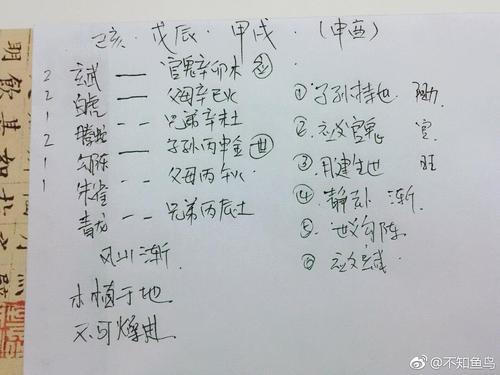 己亥·戊辰·甲戌·(申酉)
2 玄武 — 官鬼辛卯木 应
2 白虎 — 父母辛巳火
1 螣蛇 -- 兄弟辛未土
2 勾陈 — 子孙丙申金 世
1 朱雀 -- 父母丙午火
1 青龙 -- 兄弟丙辰土
风山渐
木植于地
不可燥进
①子孙持世
②应爻官鬼 官
③月建生世 旺
④静卦 渐.
⑤世爻勾陈
⑥应爻玄武
@不知鱼鸟